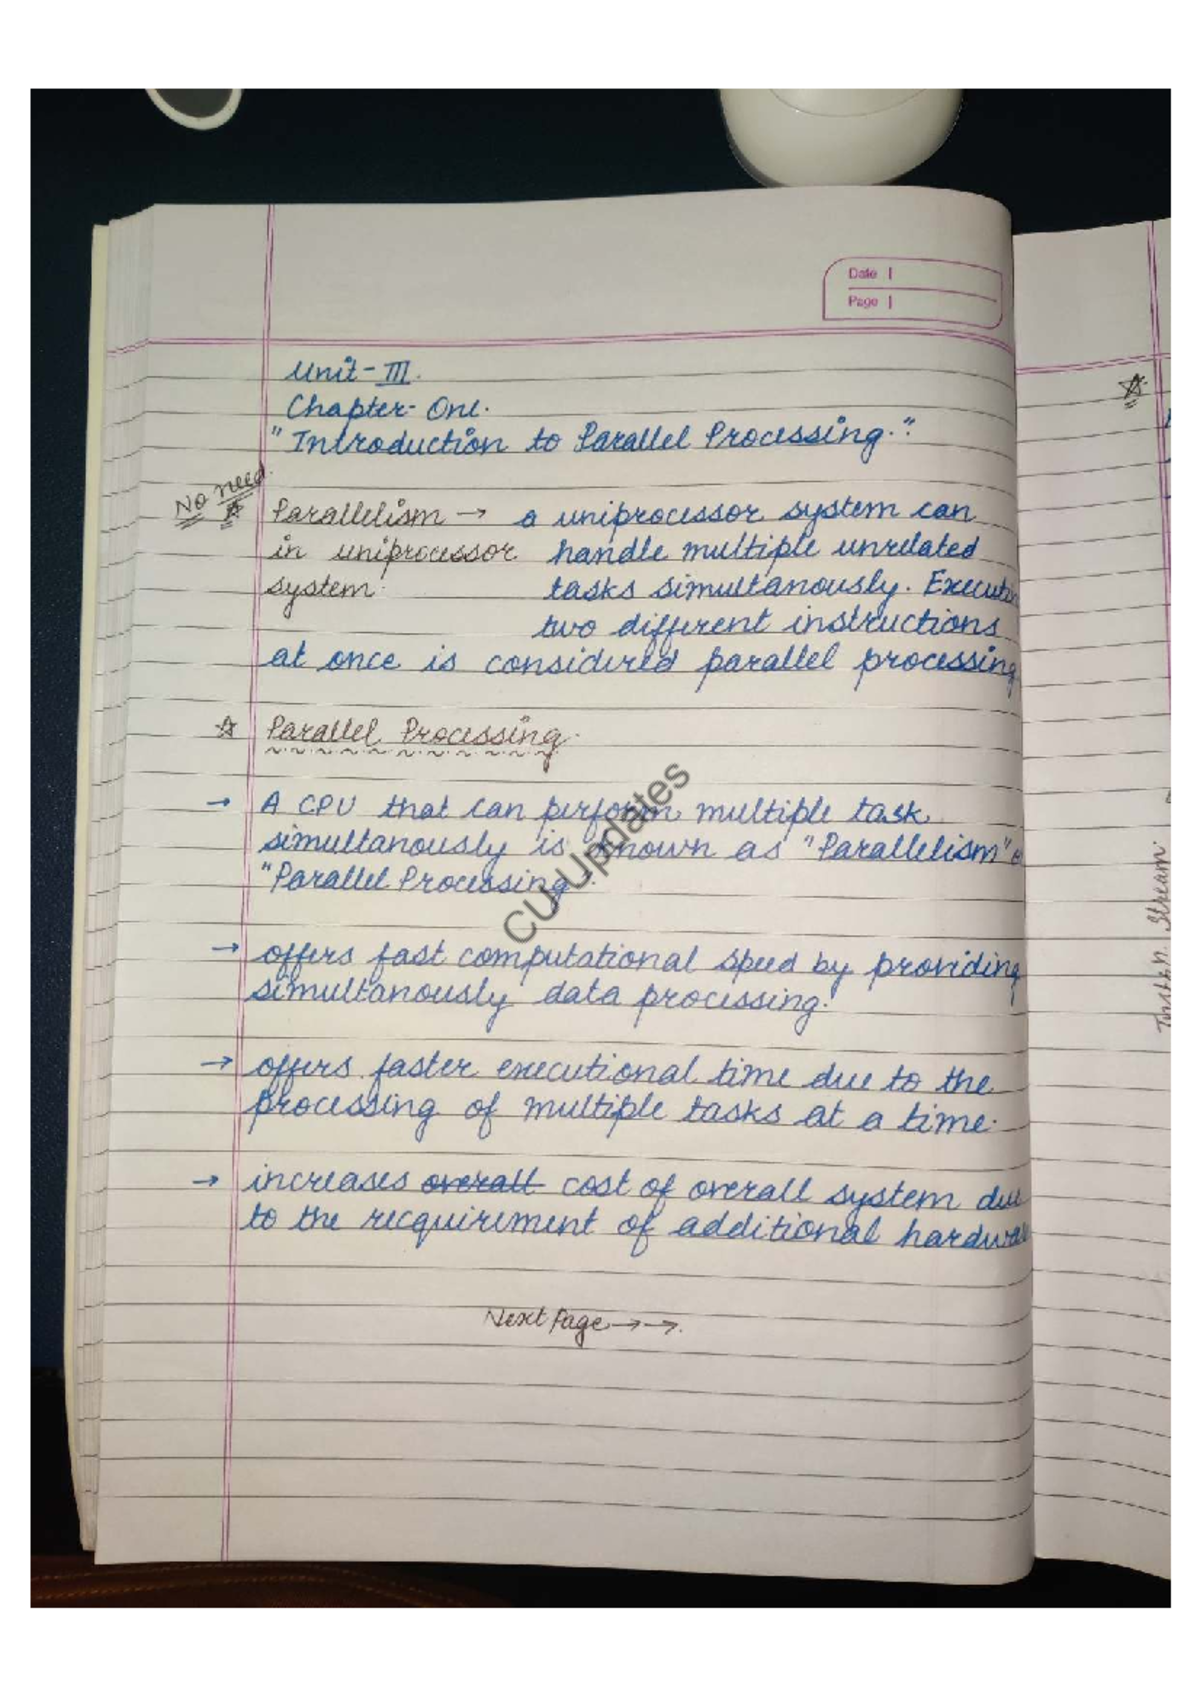 Date
Page
Unit-III.
Chapter-One.
"Introduction to Parallel Processing."
No need.
☆ Parallelism → a uniprocessor system can
in uniprocessor handle multiple unrelated
system. tasks simultanously. Executin
two different instructions
at once is considered parallel processing
☆ Parallel Processing.
→ A CPU that can perform multiple task
simultanously is known as "Parallelism" o
"Parallel Processing".
→ offers fast computational speed by providing
simultanously data processing.
→ offers faster executional time due to the
processing of multiple tasks at a time.
→ increases overall cost of overall system due
to the recquirement of additional hardwa
Next Page →→.
CU-Updates
☆
Stream.